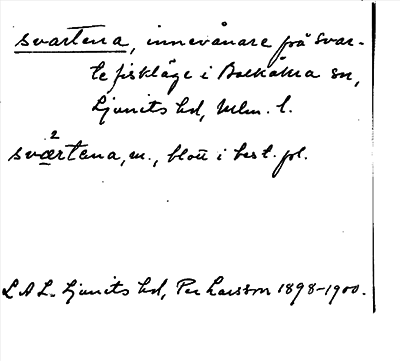 svartena, innevånare på Svar-
te fiskläge i Balkåkra sn,
Ljunits hd, Mlm. l.
sværtena, m., blott i best. pl.
2
LAL. Ljunits hd, Per Larsson 1898-1900.